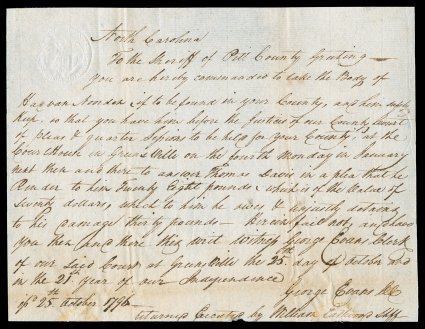 North Carolina
To the Sheriff of Pitt County Greeting —
you are hereby commanded to take the Body of
Van if to be found in your County, and him safely
keep, so that you have him before the Justices of our County Court
of pleas & quarter Sessions to be held for your County, at the
Court House in Greensville on the fourth Monday in January
next then and there to answer Thomas Davis in a plea that he
Render to him Twenty Eight pounds which is of the Value of
Seventy dollars, which to him he owes & unjustly detains
to his damage thirty pounds — Herein fail not, and have
you then and there this writ Witness George Evans Clerk
of our said Court at Greensville the 25th day of October and
in the 21st year of our Independence
George Evans
25th October 1796
returned Executed by William Eastwood Shff